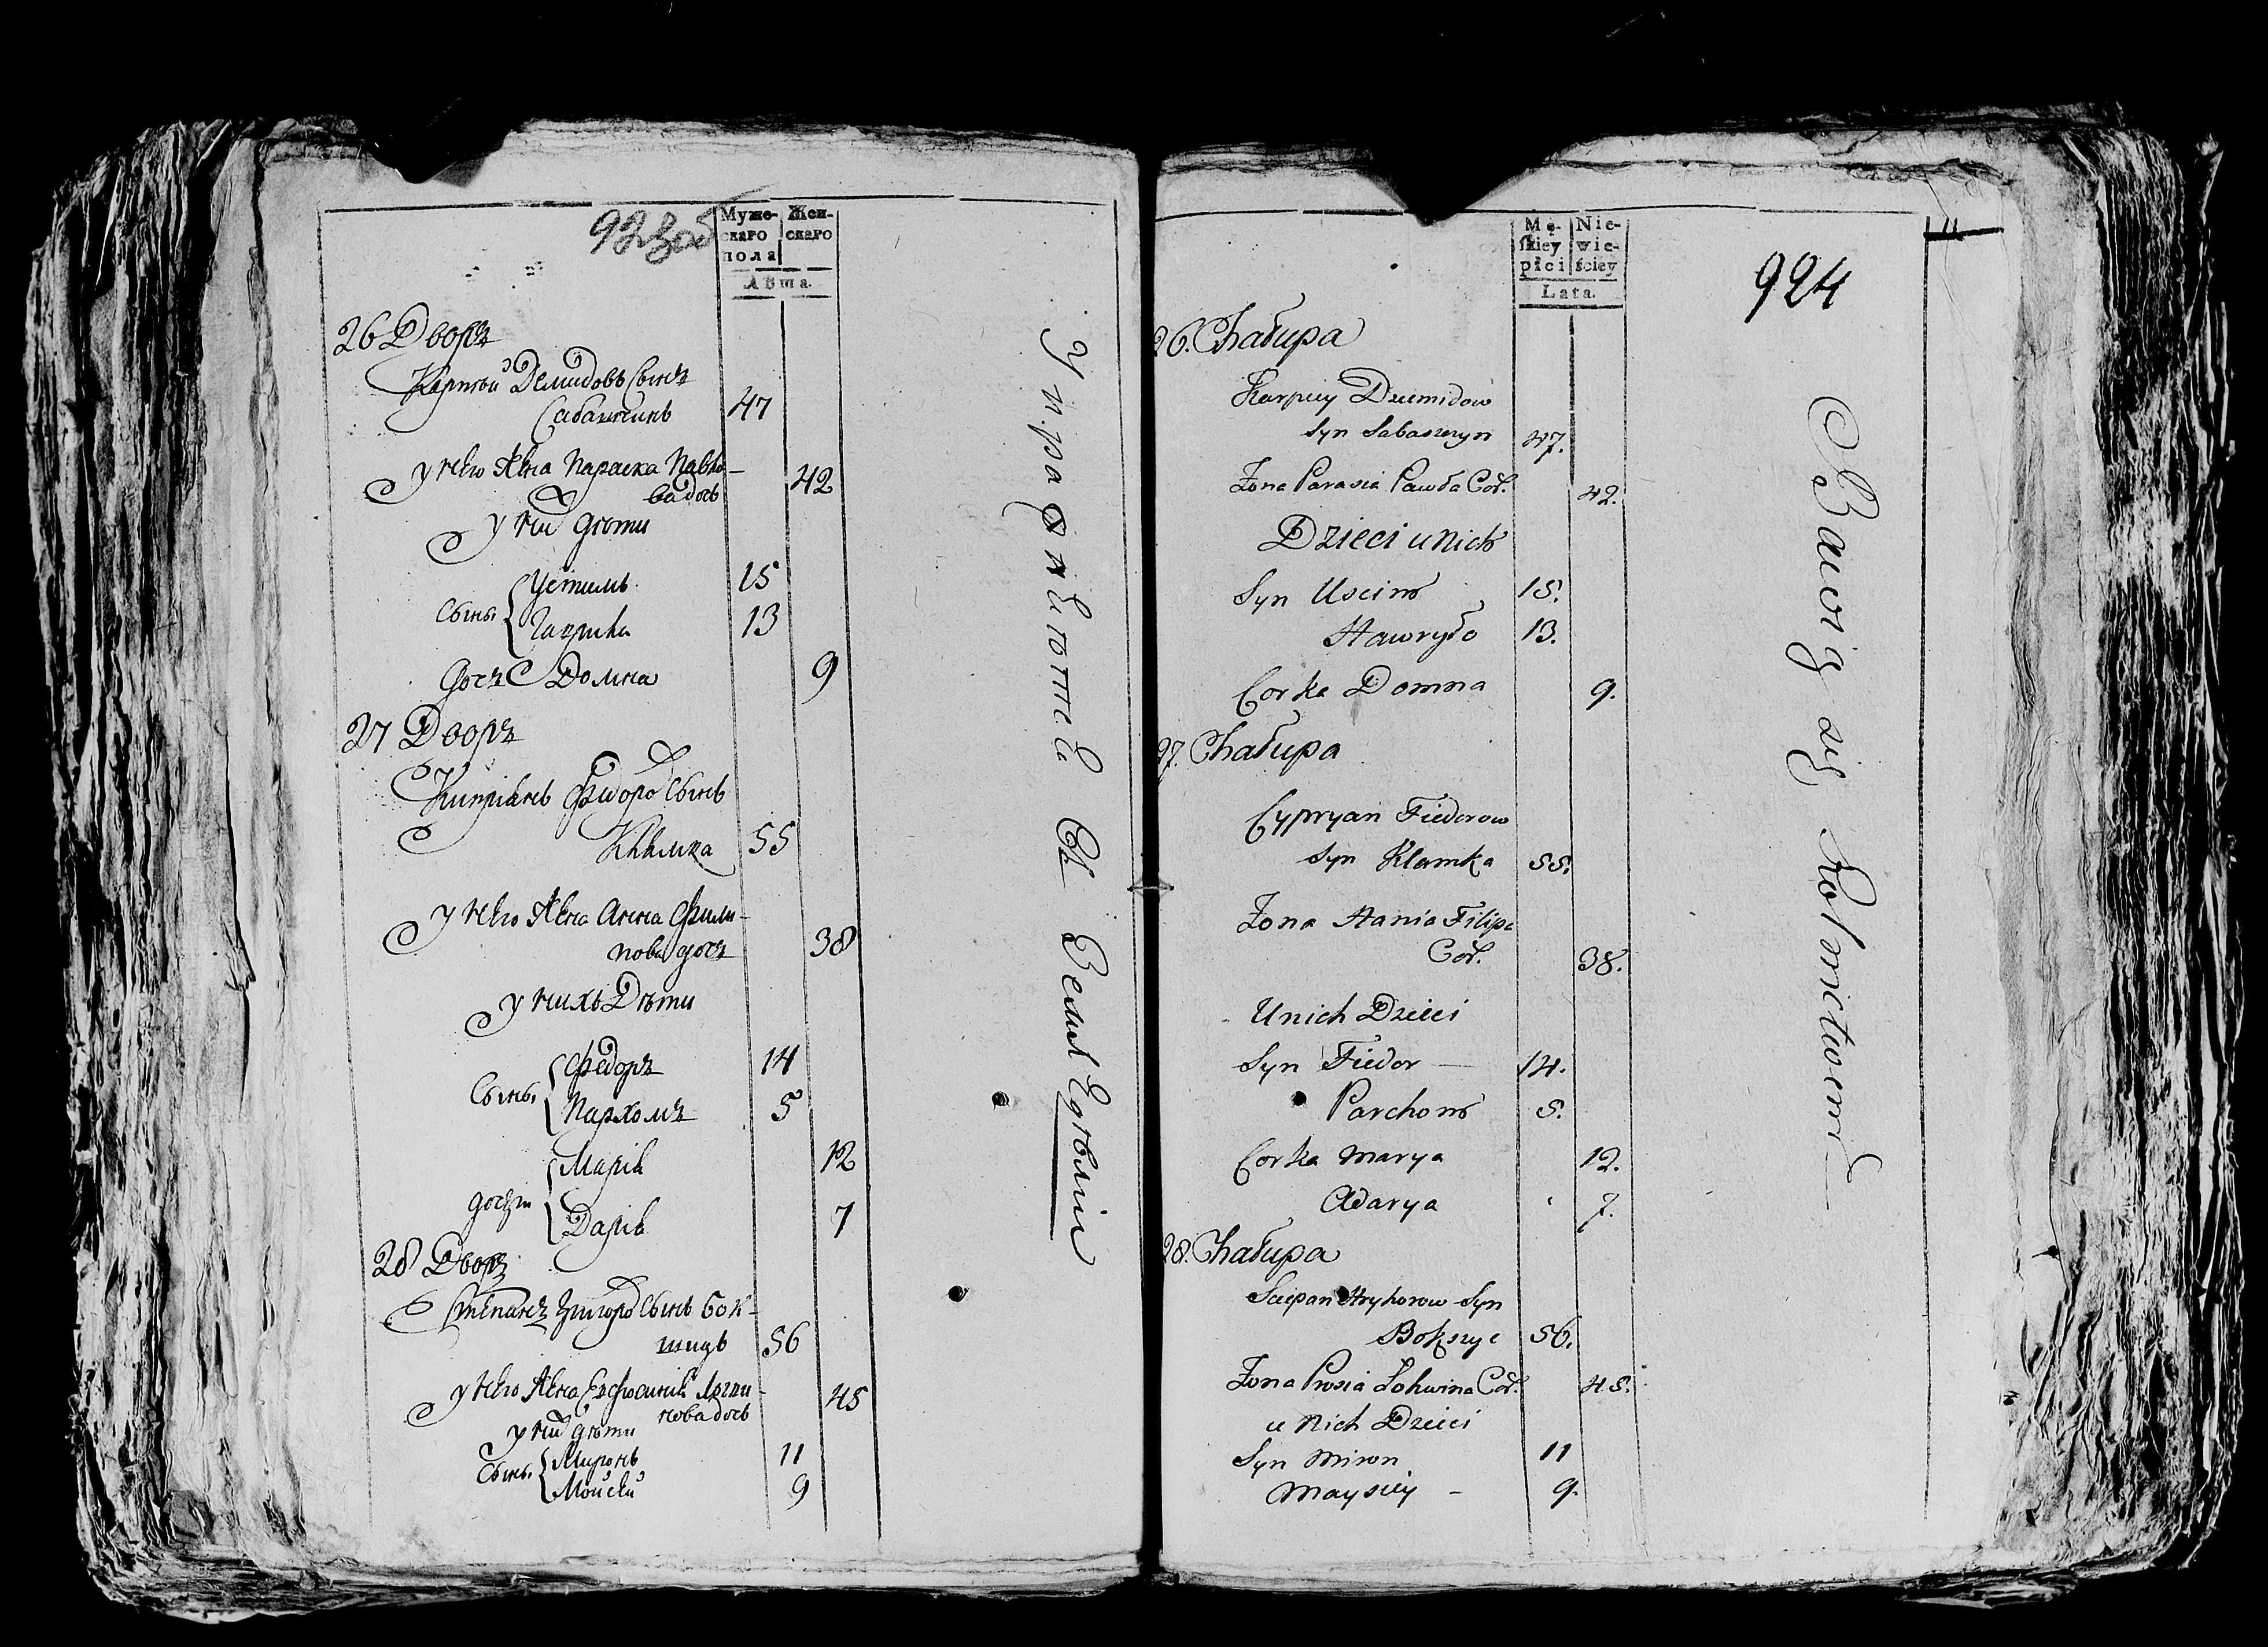 923об
Муже-
скаго
пола
Жен-
скаго
Лѣта.
26 Дворъ
Карпѣй Демидовъ Сынъ
Сабашчинъ 47
у него жена Параска Павло-
ва дочь 42
у них дѣти
Сыны Устимъ 15
Гаврила 13
дочъ Домна 9
27 Дворъ
Кипріянъ Фидоро Сынъ
Клямка 55
у него жена Анна Фили-
пова дочъ 38
у нихъ Дѣти
Сыны Федоръ 14
Пархомъ 5
дочери Марія 12
Дарія 7
28 Дворъ
Степанъ Григоро Сынъ Бок-
шицъ 56
у него жена Евфросинія Логви-
нова дочь 45
у них дѣти
Сыны Миронъ 11
Мойсей 9
Упражнѣются въ Земледѣліи
924
11
Mę-
skiey
płci
Nie-
wie-
ściey
Lata.
26. Chałupa
Karpiey Dziemidow
Syn Sabaszczyn 47.
Zona Parasia Pawła Cor. 42.
Dzieci u nich
Syn Uscim 15.
Hawryło 13.
Corka Domna 9.
27. Chałupa
Cypryan Fiedorow
Syn Klamka 55.
Zona Hania Filipa
Cor. 38.
U nich Dzieci
Syn Fiedor — 14.
Parchom 5.
Corka Marya 12.
Adarya 7.
28. Chałupa
Sciepan Hryhorow Syn
Bokszyc 56.
Zona Prosia Łohwina Cor. 45.
u nich Dzieci
Syn Miron 11
Maysiey - 9.
Bawią się Rolnictwem